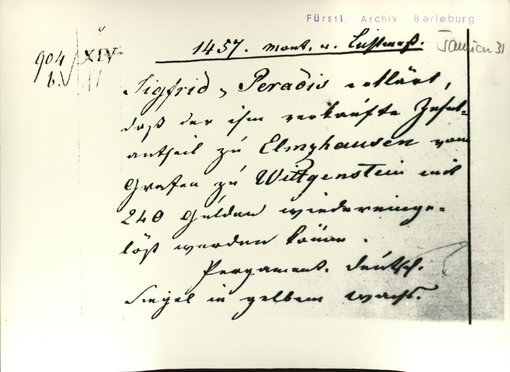 Fürstl. Archiv Berleburg
904 XIV
b.
1457. mont. n. Lichtmeß.
Januar 31
Sigfrid v. Peradis erklärt,
daß der ihm verkaufte Zehnt-
antheil zu Elmshausen vom
Grafen zu Wittgenstein mit
240 Gulden wiedereinge-
löst werden könne.
Pergament. deutsch.
Siegel in gelbem Wachs.